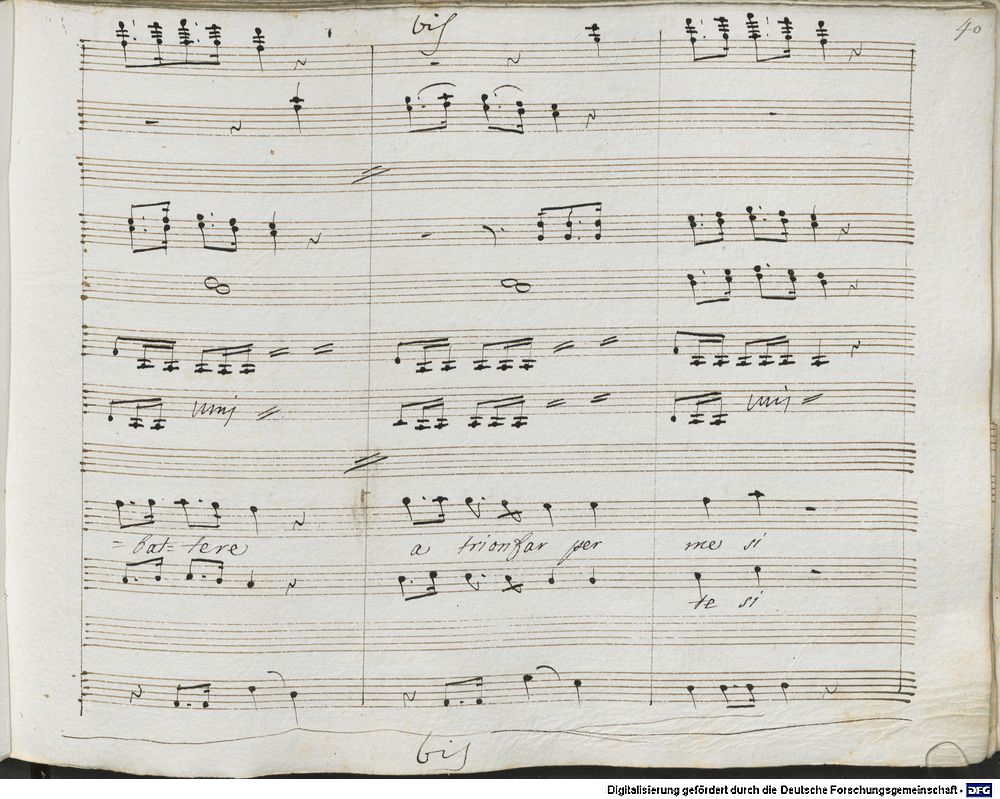 bis
40
unis
unis
=bat=tere a trionfar per me si
te si
bis
Digitalisierung gefördert durch die Deutsche Forschungsgemeinschaft - DFG